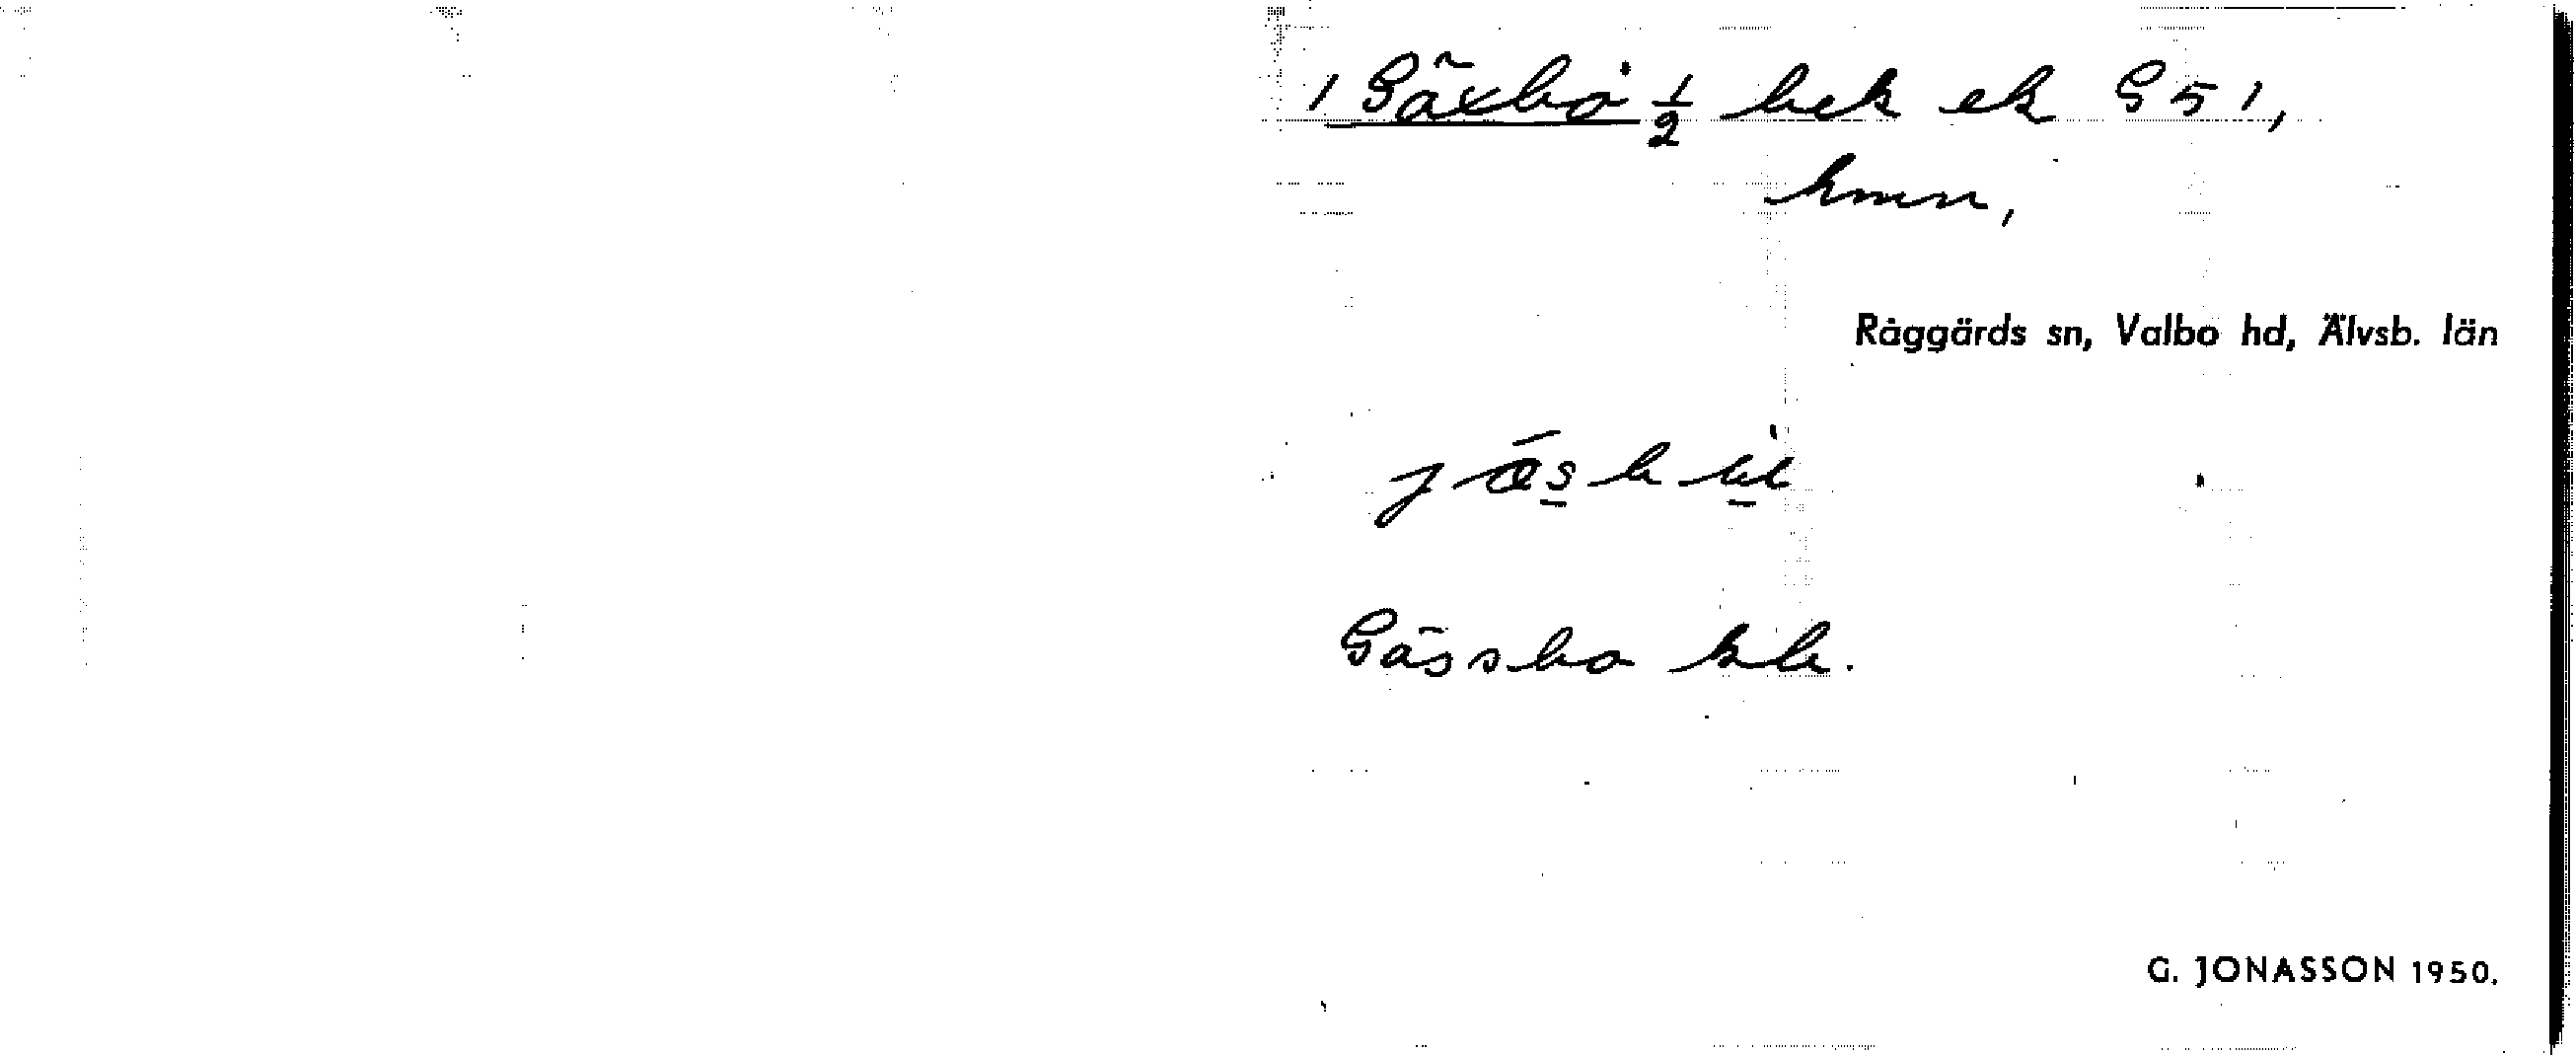 1 Gäxbo ½ bek ek G51,
hmn,
Råggärds sn, Valbo hd, Älvsb. län
Gässbo kb.
G. JONASSON 1950.